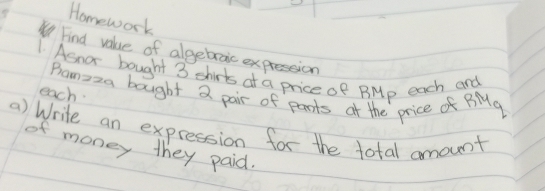 Homework
Find value of algebraic expression
1. Asnor bought 3 shirts at a price of RMp each and
Ramzza bought 2 pair of pants at the price of RMq
each.
a) Write an expression for the total amount
of money they paid.